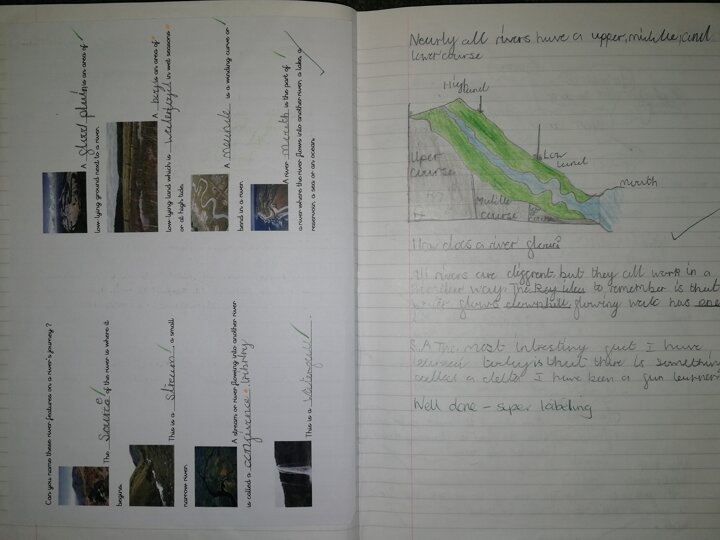 Can you name these river features on a river's journey?
The source of the river is where it
begins.
This is a stream, a small
narrow river.
A stream or river flowing into another river
is called a
This is a waterfall.
A is an area of
low-lying ground next to a river.
A is an area of
low-lying land which is in wet seasons
or at high tide.
A is a winding curve or
bend in a river.
A river mouth is the part of
a river where the river flows into another river, a lake, a
reservoir, a sea or an ocean.
Nearly all rivers have a upper, middle, and
lower course
High land
Uper
course
course
Low
land
mouth
How does a river flow?
All rivers are different but they all work in a
way. The Key idea to remember is that
water flows downhill flowing has
S.A The most intresting fact I have
learned today is that there is something
called a delta I have been a learner
Well done - super labeling